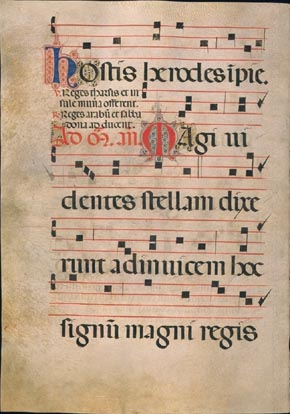 hostis herodes īpie.
V. Reges tharsis et in
sule munera offerent.
R. Reges arabū et saba
dona adducent.
Ad M. an. Magi ui
dentes stellam dixe
runt adinuicem hoc
signū magni regis